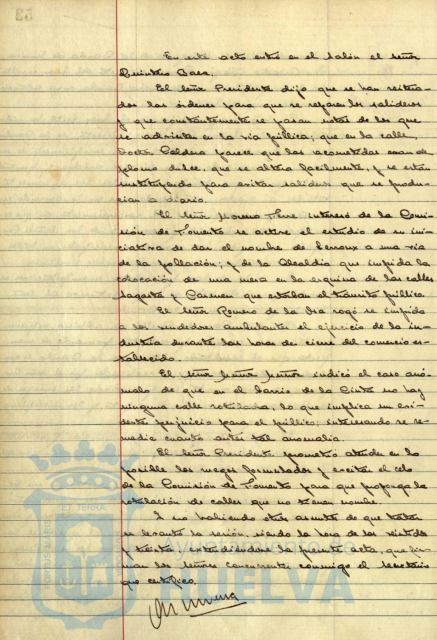 En este acto entró en el salón el señor
Quintero Baez.
El señor Presidente dijo que se han reitera-
dos las órdenes para que se reparen los salideros
y que constantemente se pasan notas de los que
se advierten en la vía pública; que en la calle
Doctor Caldera parece que las acometidas eran de
plomo dulce, que se altera facilmente, y se están
sustituyendo para evitar salideros que se produ-
cian a diario.
El señor Moreno interesó de la Comi-
sión de Fomento se active el estudio de su ini-
ciativa de dar el nombre de Lerroux a una vía
de la población; y de la Alcaldía que impida la
colocación de una mesa en la esquina de las calles
Sagasta y Carmen que estorban el tránsito público.
El señor Romero de la Osa rogó se impida
a los vendedores ambulantes el ejercicio de la in-
dustria durante las horas de cierre del comercio es-
tablecido.
El señor Muñoz Muñoz indicó el caso anó-
malo de que en el barrio de la Cinta no hay
ninguna calle rotulada, lo que implica un evi-
dente perjuicio para el público; interesando se re-
medie cuanto antes tal anomalía.
El señor Presidente prometió atender en lo
posible los ruegos formulados y excitar el celo
de la Comisión de Fomento para que proponga la
rotulación de calles que no tienen nombre.
Y no habiendo otros asuntos de que tratar
se levantó la sesión, siendo la hora de las veintidos
y treinta; extendiéndose la presente acta, que fir-
man los señores concurrentes conmigo el Secretario
que certifico.
HUELVA